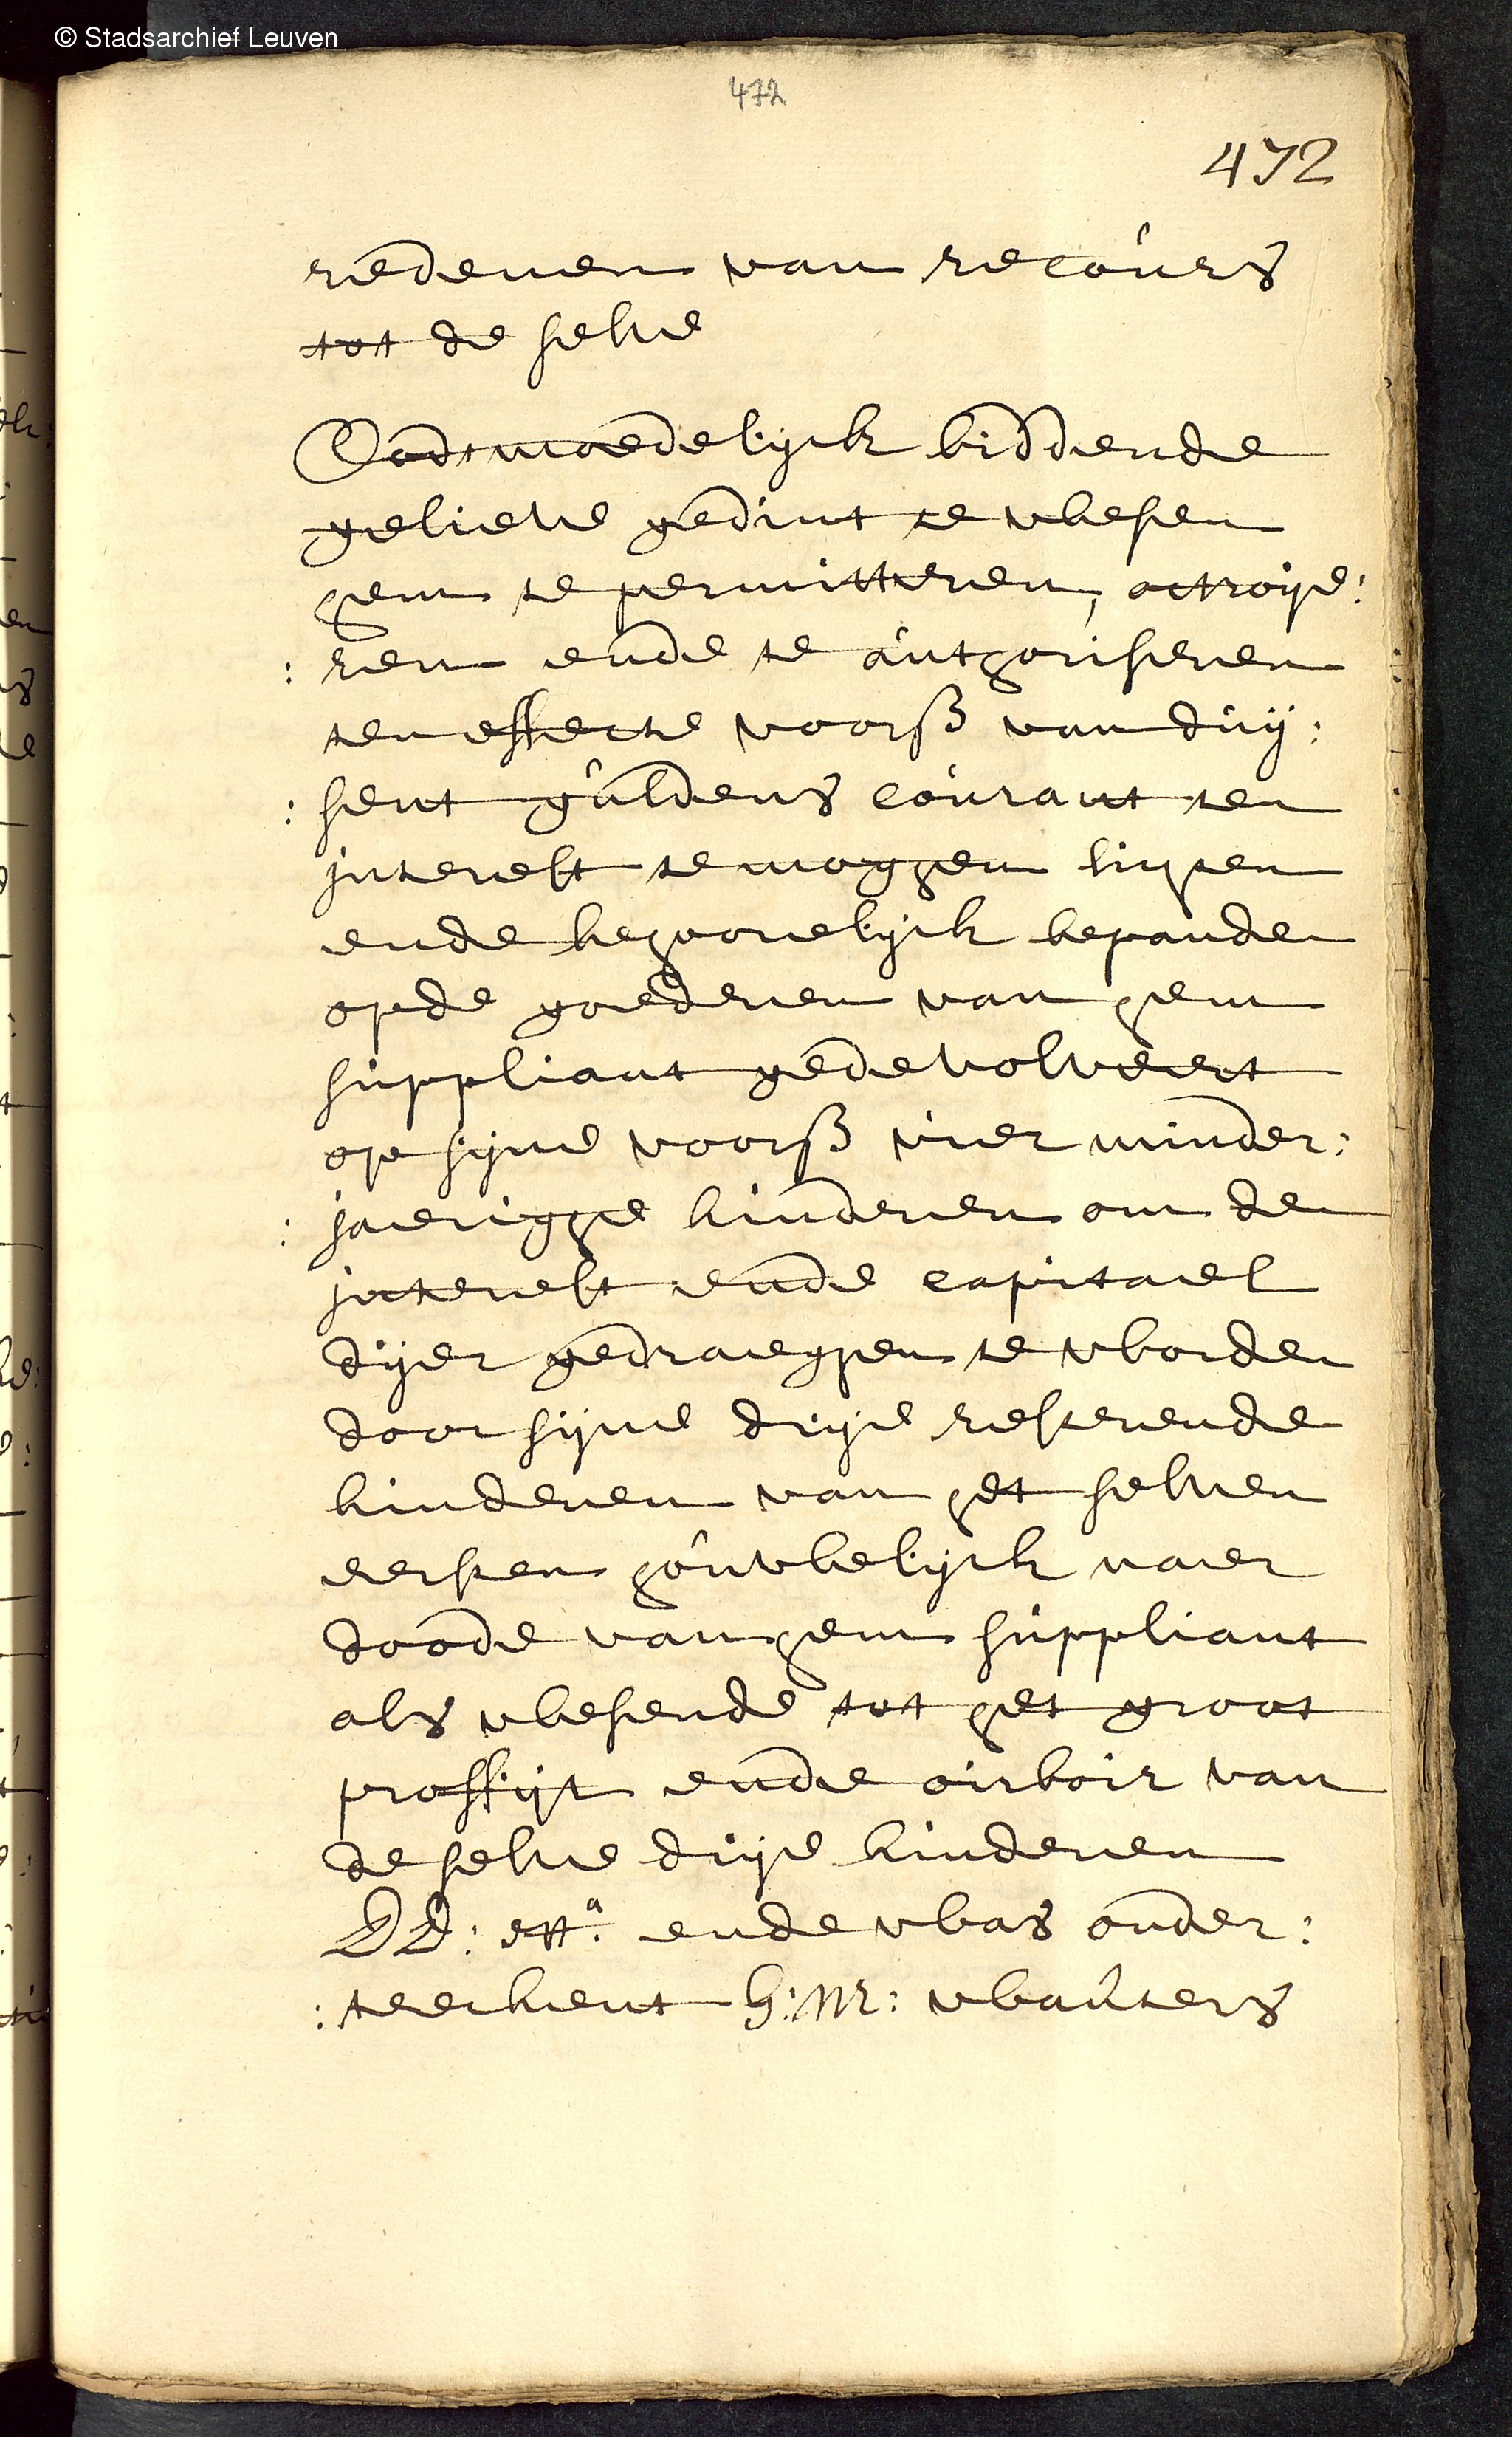 © Stadsarchief Leuven
472
472
redenen van recours
tot de selve
Oodtmoedelijck biddende
gelieve gedint te wesen
hem te permitteren, octroije:
: ren ende te authoriseren
ten effecte voorß van duij:
: sent guldens courant ten
interest te mogghen lichten
ende behoorelijck bepanden
op de goederen van hem
suppliant gedevolveert
op sijne voorß vier minder:
: jaerigghe kinderen om den
interest ende capitael
dijer gedraeghen te worden
door sijne drije resterende
kinderen van het selven
eersten houwelijck naer
doode van hem suppliant
als wesende tot het groot
proffijt ende oirboir van
de selve drije kinderen
DD: etta. ende was onder:
: teeckent G: M: Wauters